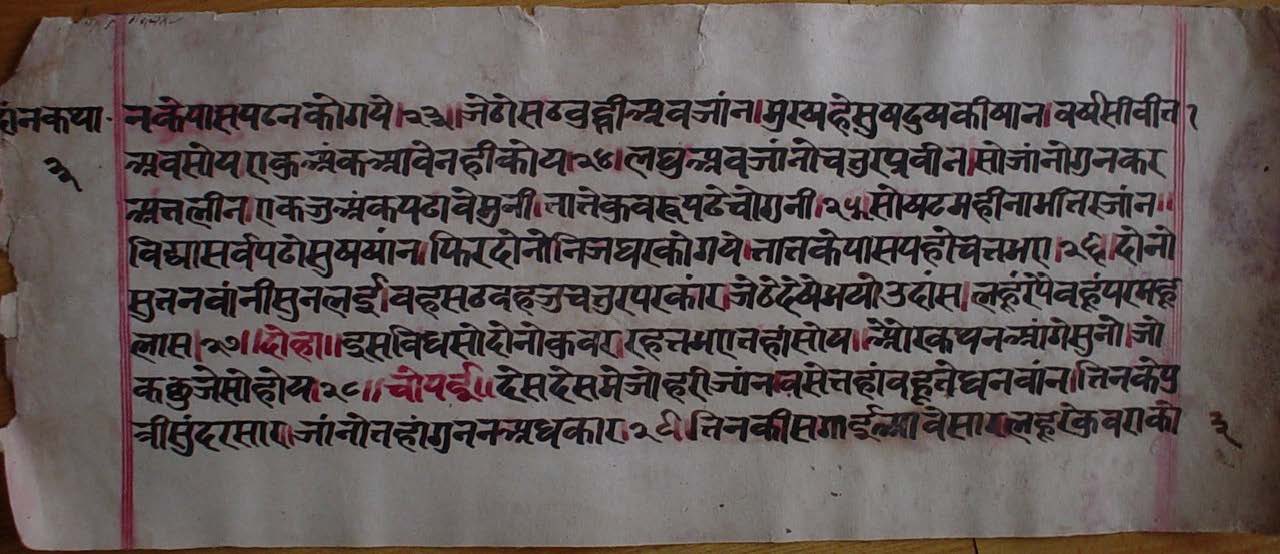 दांनकथा
३
नकेपासपढनकोगये।२३।जेठोसठवुद्धीअवजांन।मुरष्यहेसुषदुषकीषान।वर्षसीवीत
अवसोय।एकअंकआवेनहीकोय।२४।लघुअवजांनोचतुरप्रवीन।सोजांनोगुनकर
अतलीन।एकजुअंकपढावेमुनी।तातेकवरूपढेचोगुनी।२५।सोषटमहीनामीतरजांन।।
विद्यासर्वपढोसुषषांन।फिरदोनोनिजघरकोगये।तातकेपासपहोचतभए।२६।दोनो
सुतनवांनीसुनलई।वहसठवहजुचतुरपरकांर।जेठेदेषेभयोउदांस।लहूरेपेवहूपरमहू
लास।२७।।दोहा।।इसविधसोदोनोकवर।रहतभएतहांसोय।।ओरकथनआंगेसुनो।जो
कछुजेसोहोय।२८।।चोपई।।देसदेसमेजोहरीज्यांन।वसेतहांवहूतेधनवांन।तिनकेपु
त्रीसुंदरसार।जांनोतहांगुननअधकार।२९।तिनकीसगाईआवेसार।लहूरेकवराको
३